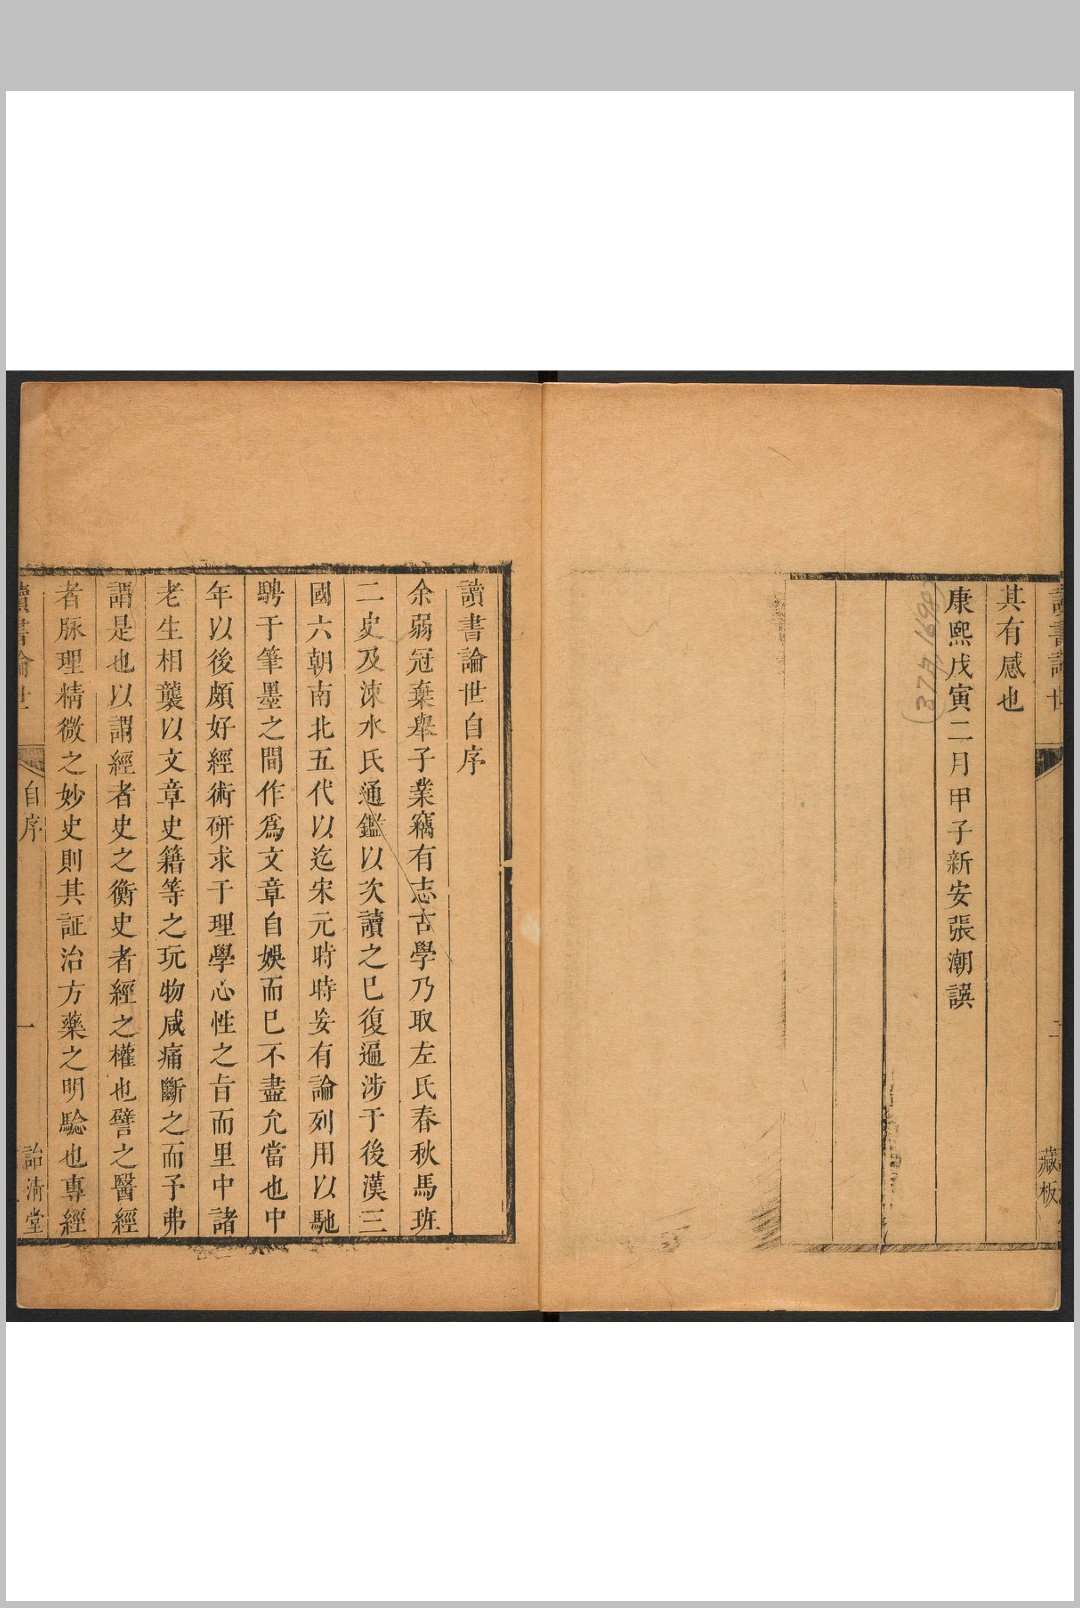 讀書論世
二
藏板
其有感也
康熙戊寅二月甲子新安張潮譔
(37年1698)
讀書論世自序
余弱冠棄舉子業竊有志古學乃取左氏春秋馬班
二史及涑水氏通鑑以次讀之已復遍涉于後漢三
國六朝南北五代以迄宋元時時妄有論列用以馳
騁于筆墨之間作爲文章自娛而已不盡允當也中
年以後頗好經術研求于理學心性之旨而里中諸
老生相襲以文章史籍等之玩物咸痛斷之而予弗
謂是也以謂經者史之衡史者經之權也譬之醫經
者脉理精微之妙史則其証治方藥之明驗也專經
讀書論世
自序
一
詒清堂